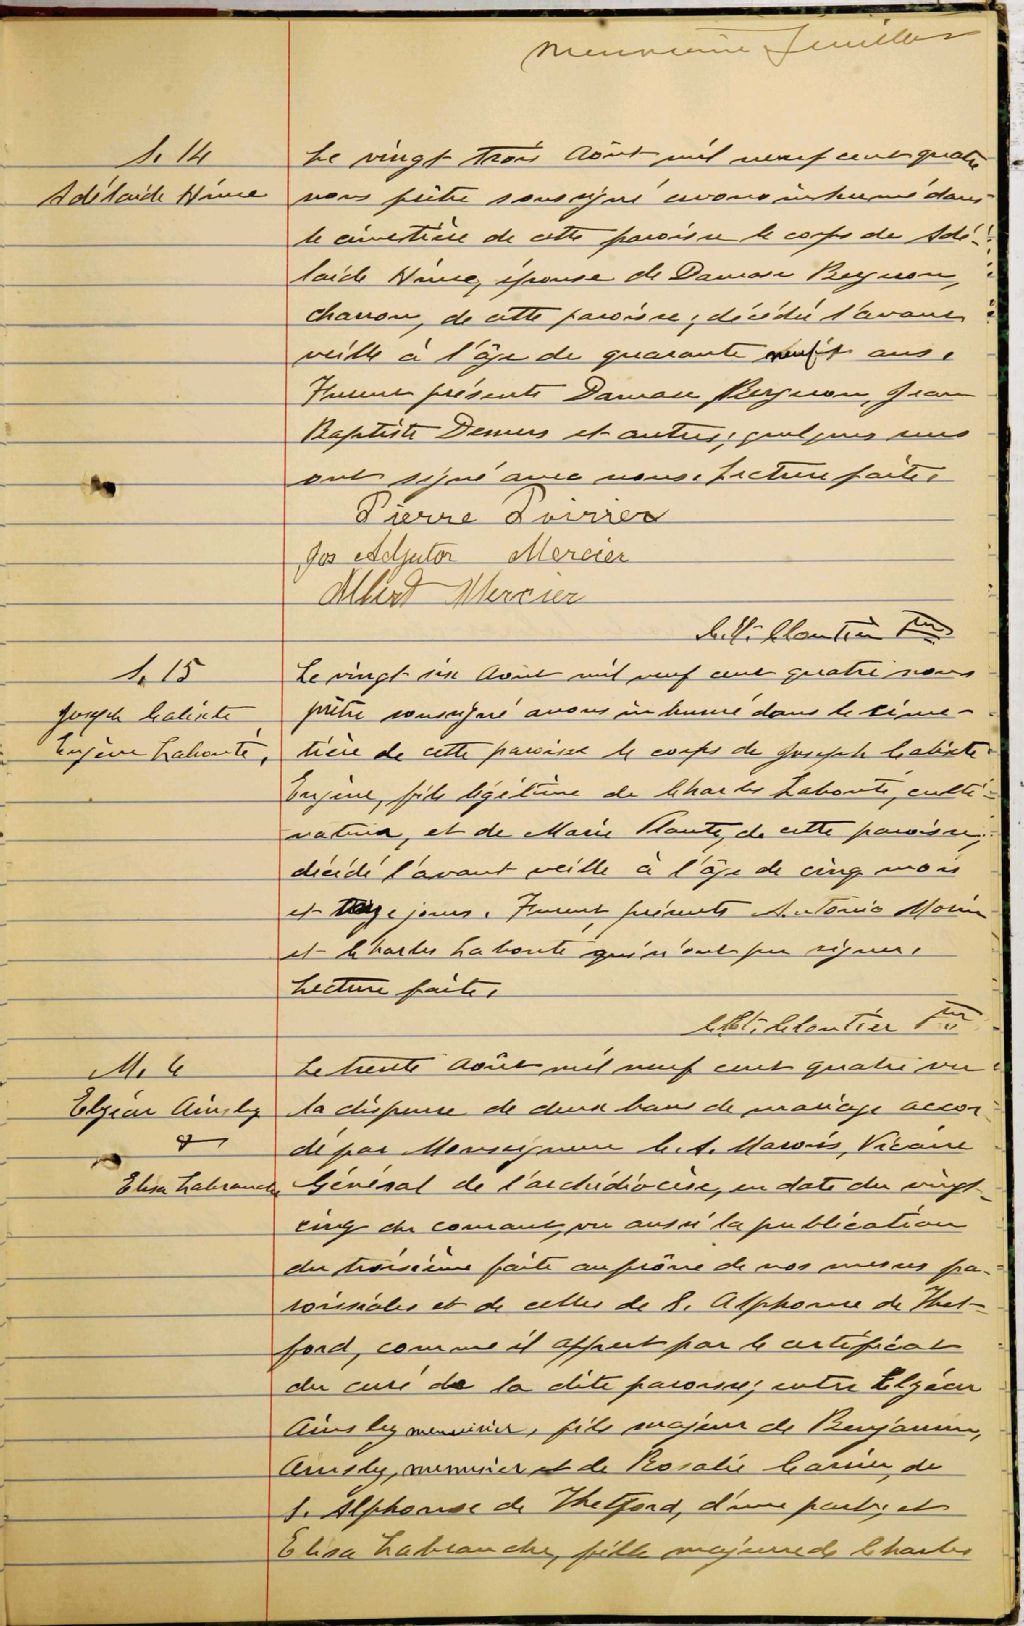 feuillet
S. 14
Adélaide Hince
Le vingt trois Août mil neuf cent quatre
nous prêtre soussigné avons inhumé dans
le cimetière de cette paroisse le corps de Adé-
laide Hince, épouse de Damase Bergeron,
charron, de cette paroisse, décédée l'avant
veille à l'âge de quarante neuf ans.
Furent présents Damase Bergeron, Jean
Baptiste Demers et autres, quelques uns
ont signé avec nous. Lecture faite.
Pierre Poirier
Jos Adjutor Mercier
Albert Mercier
Cloutier Ptre
S. 15
Joseph Calixte
Eugène Labonté,
Le vingt six Août mil neuf cent quatre nous
prêtre soussigné avons inhumé dans le cime-
tière de cette paroisse le corps de Joseph Calixte
Eugène, fils légitime de Charles Labonté, culti-
vateur, et de Marie Plante, de cette paroisse,
décédé l'avant veille à l'âge de cinq mois
et jours. Furent présents Antonio Morin
et Charles Labonté qui n'ont pu signer.
Lecture faite.
Cloutier Ptre
M. 6
Elzéar Ainsley
&
Elisa Labranche
Le trente Août mil neuf cent quatre vu
la dispense de deux bans de mariage accor-
dé par Monseigneur C. A. Marois, Vicaire
Général de l'archidiocèse, en date du vingt-
cinq du courant, vu aussi la publication
du troisième faite au prône de nos messes pa-
roissiales et de celles de S. Alphonse de Thet-
ford, comme il appert par le certificat
du curé de la dite paroisse; entre Elzéar
Ainsley menuisier, fils majeur de Benjamin
Ainsley, menuisier et de Rosalie Carrier, de
S. Alphonse de Thetford, d'une part, et
Elisa Labranche, fille majeure de Charles